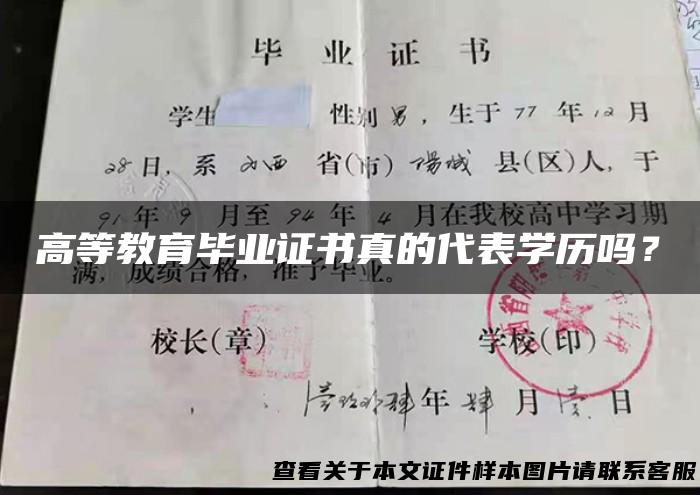 毕业证书
学生 性别男，生于77年12月
28日，系山西省(市)阳城县(区)人，于
91年9月至94年4月在我校高中学习期
高等教育毕业证书真的代表学历吗？
满，成绩合格，准予毕业。
校长(章) 学校(印)
年肆月壹日
查看关于本文证件样本图片请联系客服